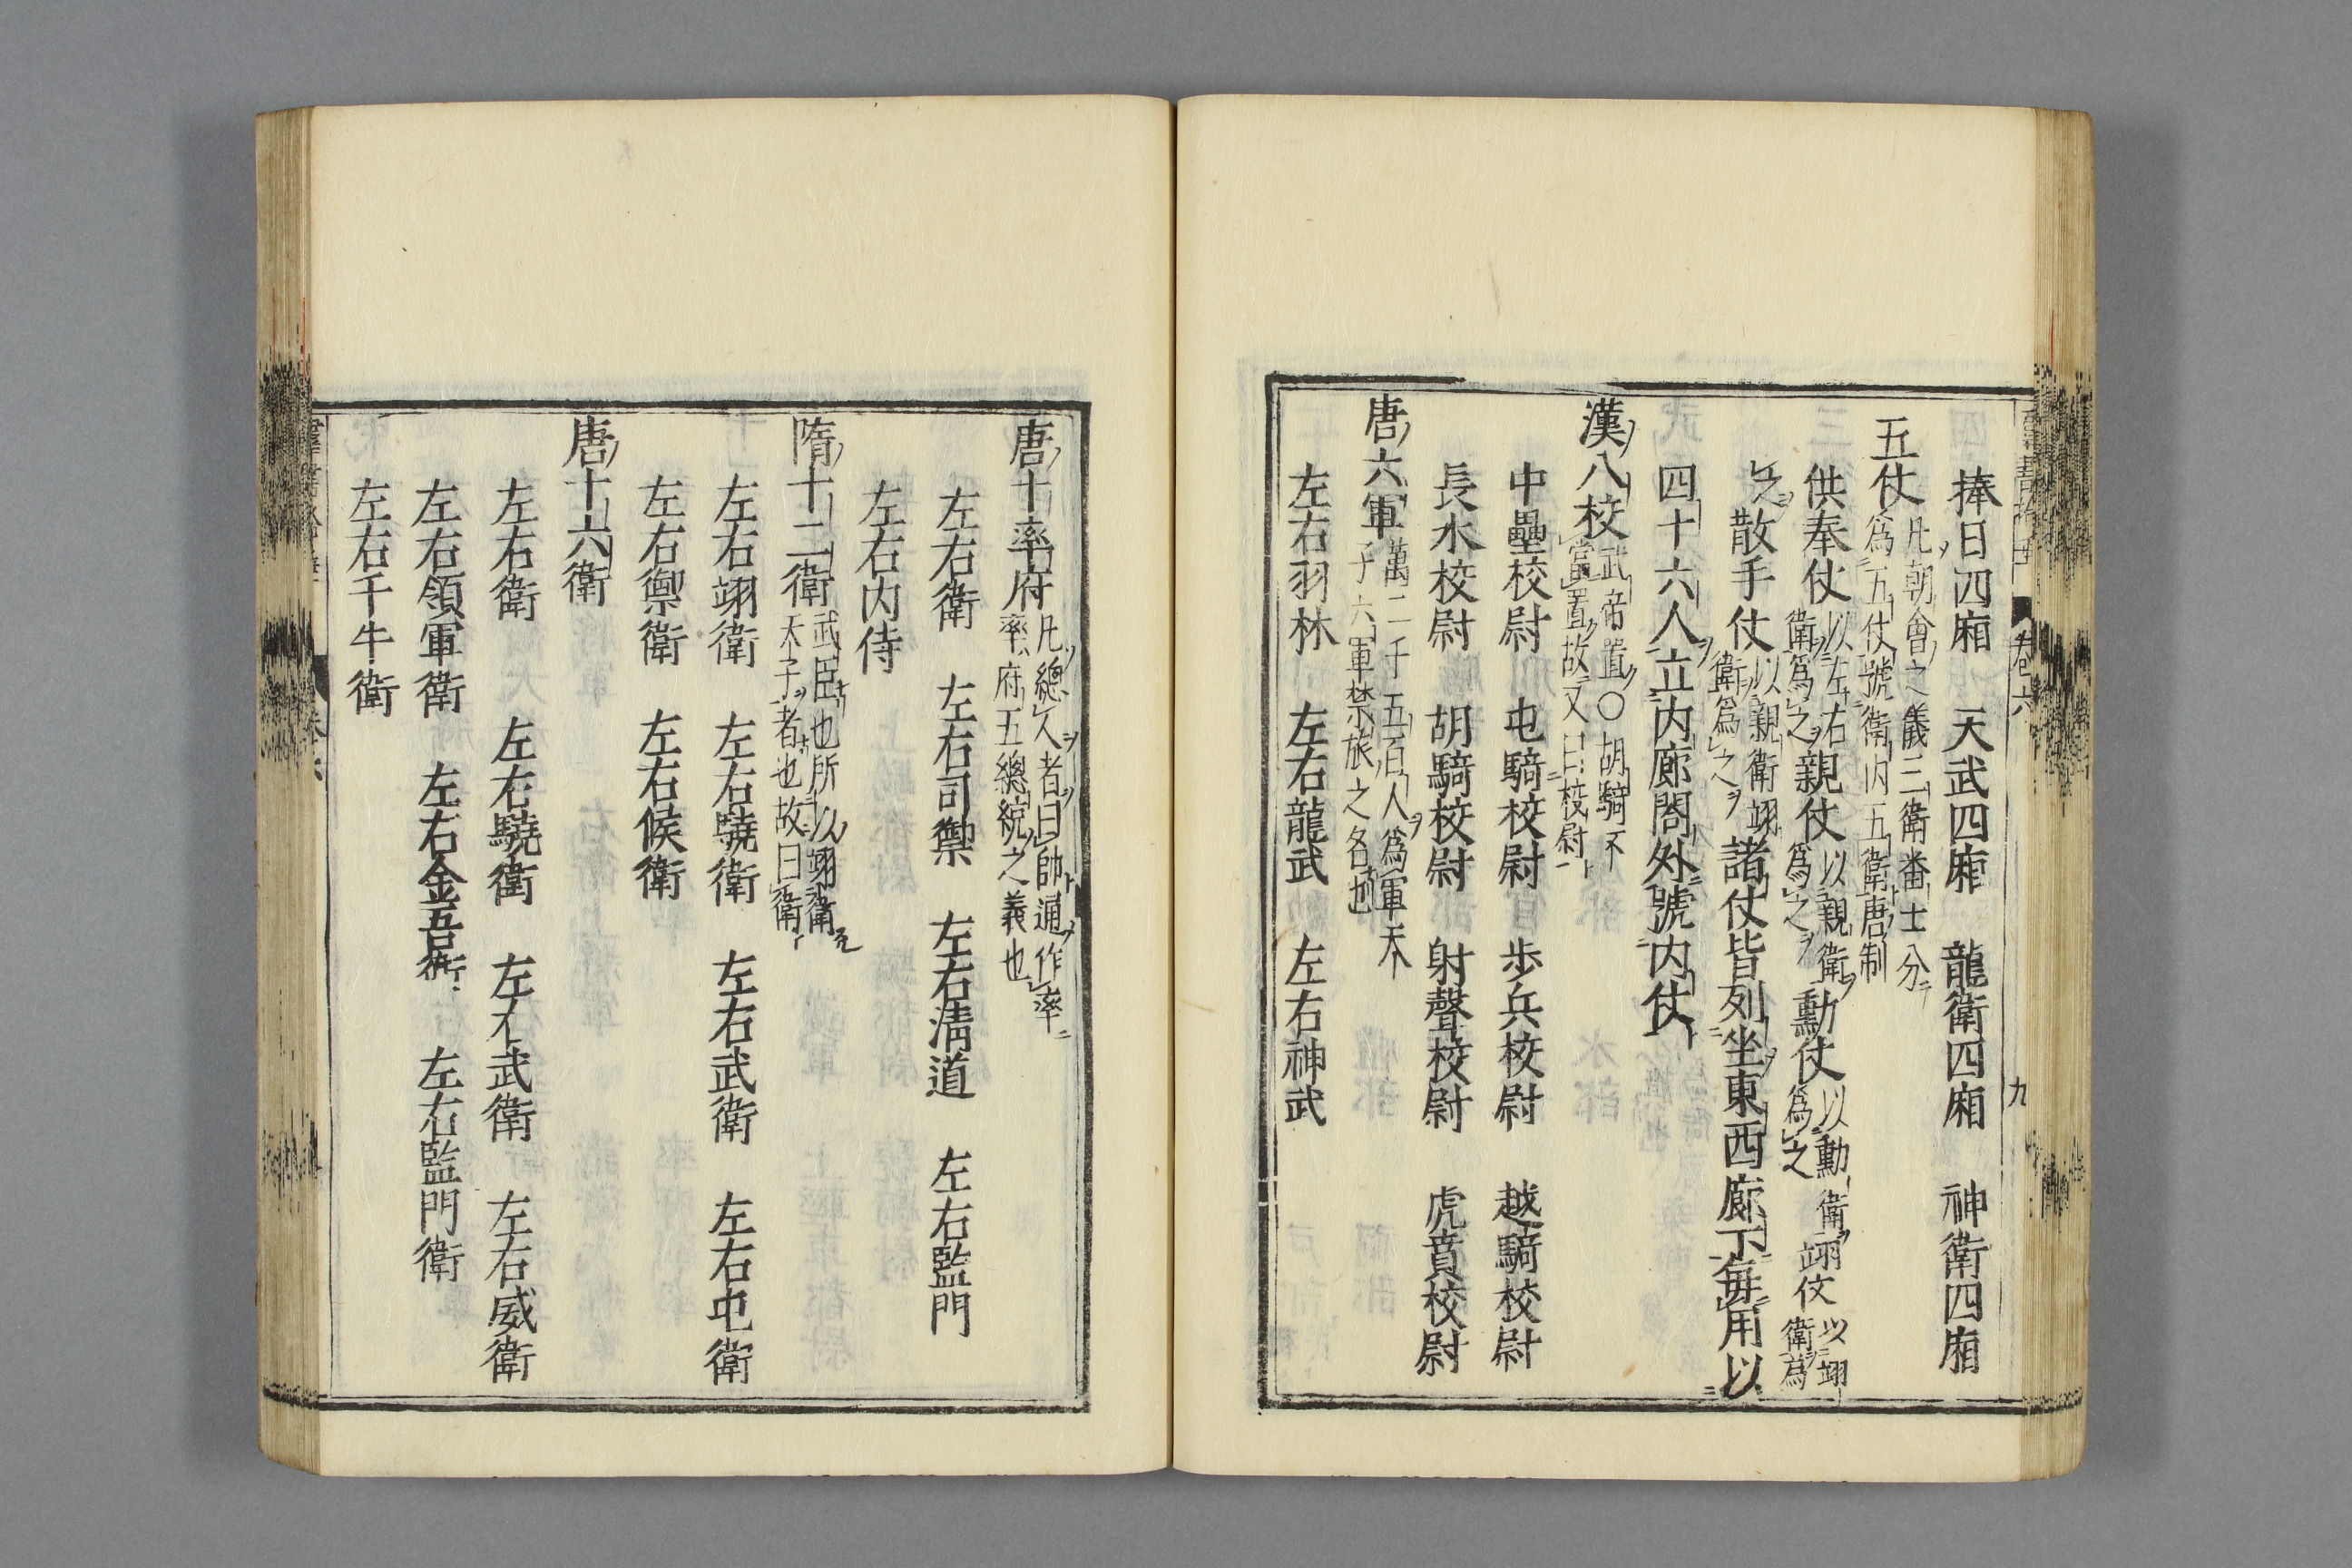 捧日四廂　天武四廂　龍衛四廂　神衛四廂
五仗凡朝會之儀三衛番士分為五仗號衛内五衛唐制
供奉仗以左右衛為之親仗以親衛為之勳仗以勳衛為之翊仗以翊衛為
之散手仗以親衛翊衛為之諸仗皆列坐東西廊下每用以
四十六人立内廊閤外號内仗
漢八校武帝置〇胡騎不當置故又曰校尉
中壘校尉　屯騎校尉　歩兵校尉　越騎校尉
長水校尉　胡騎校尉　射聲校尉　虎賁校尉
唐六軍萬二千五百人為軍天子六軍禁旅之名也
左右羽林　左右龍武　左右神武
卷六
九
唐十率府凡總人者曰帥通作率率府五總統之義也
左右衛　左右司禦　左右清道　左右監門
左右内侍
隋十二衛武臣也所以翊衛天子者也故曰衛
左右翊衛　左右驍衛　左右武衛　左右屯衛
左右禦衛　左右候衛
唐十六衛
左右衛　左右驍衛　左右武衛　左右威衛
左右領軍衛　左右金吾衛　左右監門衛
左右千牛衛